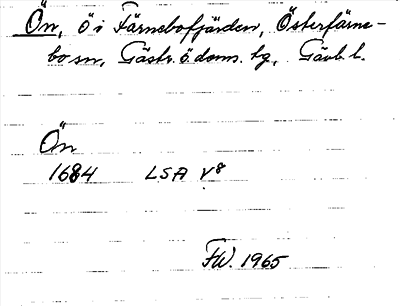 Ön, ö i Färnebofjärden, Österfärne-
bo sn, Gästr. ö. doms. tg, Gävb. l.
Ön
1684 LSA V8
FW. 1965